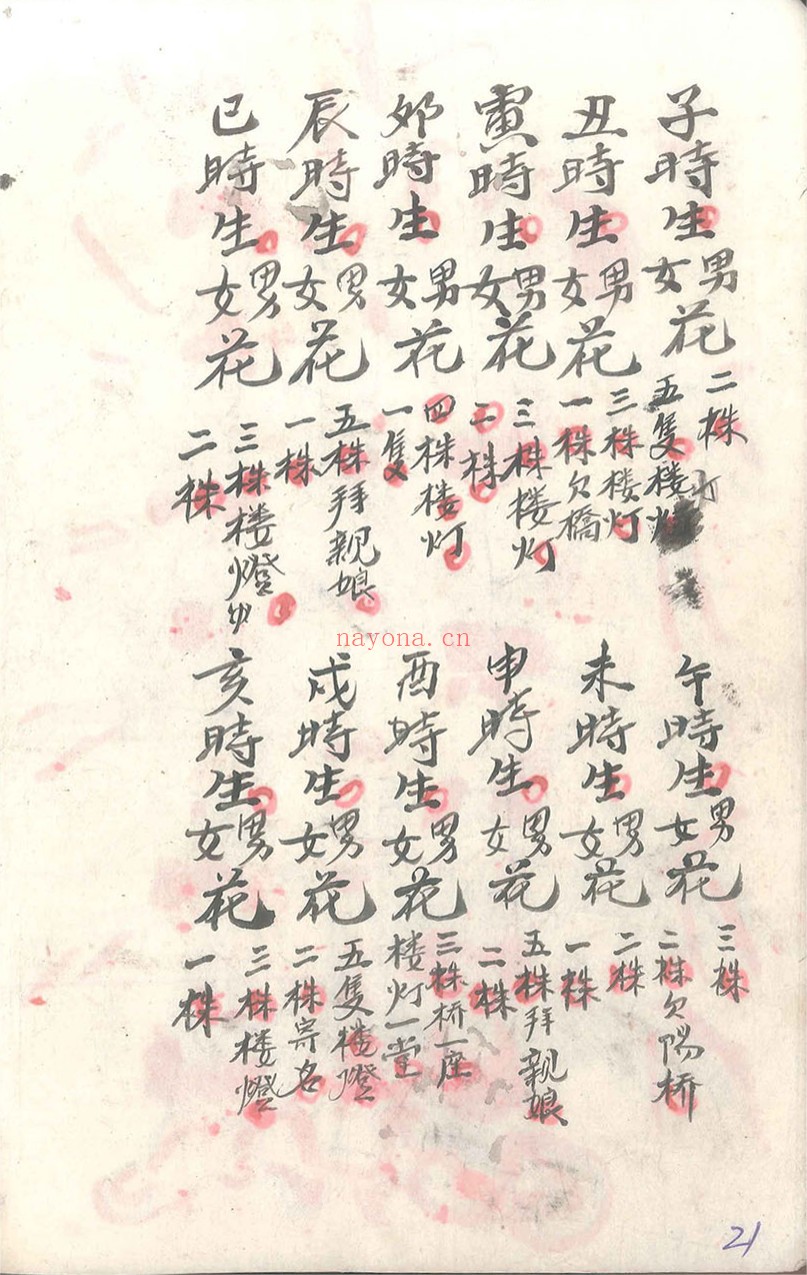 子時生男女花二株灯五隻楼灯
丑時生男女花三株楼灯一株欠橋
寅時生男女花三株楼灯二株
卯時生男女花四株楼灯一隻
辰時生男女花五株拜親娘一株
巳時生男女花三株楼燈少二株
午時生男女花三株二株欠陽桥
未時生男女花二株一株
申時生男女花五株拜親娘二株
酉時生男女花三株桥一座楼灯一堂
戍時生男女花五隻楼燈二株寄名
亥時生男女花三株楼燈一株
nayona.cn
21